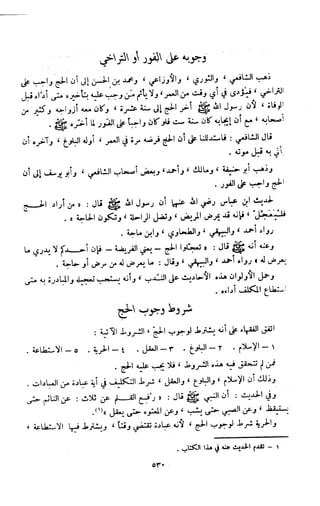 وجوبه على الفور أو التراخي
ذهب الشافعي ، والثوري ، والأوزاعي ، ومحمد بن الحسن إلى أن الحج واجب على
التراخي ، فيؤدى في أي وقت من العمر ، ولا يأثم من وجب عليه بتأخيره متى أداه قبل
الوفاة ، لأن رسول الله ﷺ أخر الحج إلى سنة عشرة ، وكان معه أزواجه وكثير من
أصحابه ، مع أن إيجابه كان سنة ست فلو كان واجباً على الفور لما أخره ﷺ .
قال الشافعي : فاستدللنا على أن الحج فرضه مرة في العمر ، أوله البلوغ ، وآخره أن
يأتي به قبل موته .
وذهب أبو حنيفة ، ومالك ، وأحمد ، وبعض أصحاب الشافعي ، وأبو يوسف إلى أن
الحج واجب على الفور .
لحديث ابن عباس رضي الله عنهما أن رسول الله ﷺ قال : « من أراد الحج
فليعجل ، فإنه قد يمرض المريض ، وتضل الراحلة ، وتكون الحاجة » .
رواه أحمد ، والبيهقي ، والطحاوي ، وابن ماجة .
وعنه أنه ﷺ قال : « تعجلوا الحج – يعني الفريضة – فإن أحدكم لا يدري ما
يعرض له » رواه أحمد ، والبيهقي ، وقال : ما يعرض له من مرض أو حاجة .
وحمل الأولون هذه الأحاديث على الندب ، وأنه يستحب تعجيله والمبادرة به متى
استطاع المكلف أداءه .
شروط وجوب الحج
اتفق الفقهاء على أنه يشترط لوجوب الحج ، الشروط الآتية :
١ – الإسلام . ٢ – البلوغ . ٣ – العقل . ٤ – الحرية . ٥ – الاستطاعة .
فمن لم تتحقق فيه هذه الشروط ، فلا يجب عليه الحج .
وذلك أن الإسلام ، والبلوغ ، والعقل ، شرط التكليف في أية عبادة من العبادات .
وفي الحديث : أن النبي ﷺ قال : « رفع القلم عن ثلاث : عن النائم حتى
يستيقظ ، وعن الصبي حتى يشب ، وعن المعتوه حتى يعقل » (١) .
والحرية شرط لوجوب الحج ، لأنه عبادة تقتضي وقتاً ، ويشترط فيها الاستطاعة ،
١ – تقدم الحديث عنه في هذا الكتاب .
٥٣٠